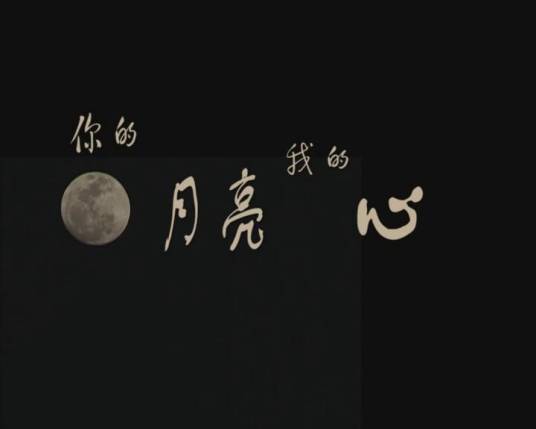 你的
月亮
我的
心